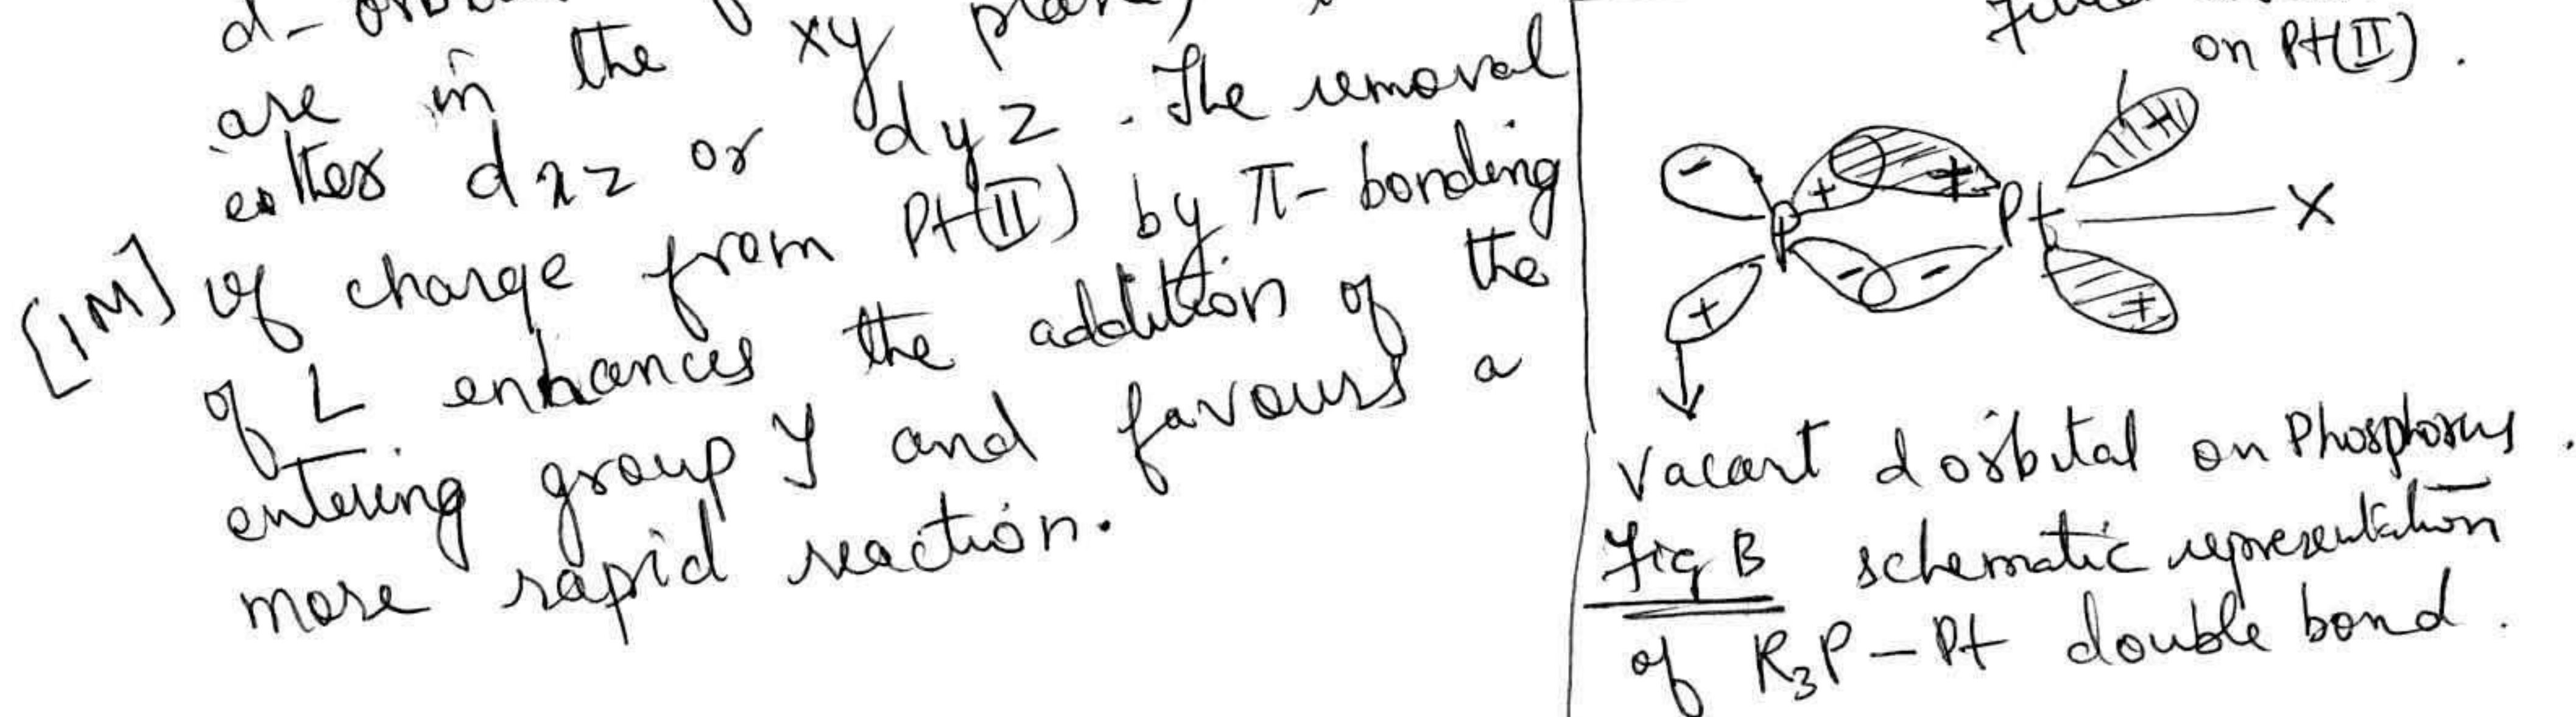 d-
are in the xy
either dxz or dyz. The removal
[1M] of charge from Pt(II) by π-bonding
of L enhances the addition of the
entering group Y and favours a
more rapid reaction.
on Pt(II).
- + + + P Pt X
+ - - +
Vacant d orbital on Phosphorus.
Fig B schematic representation
of R₃P-Pt double bond.